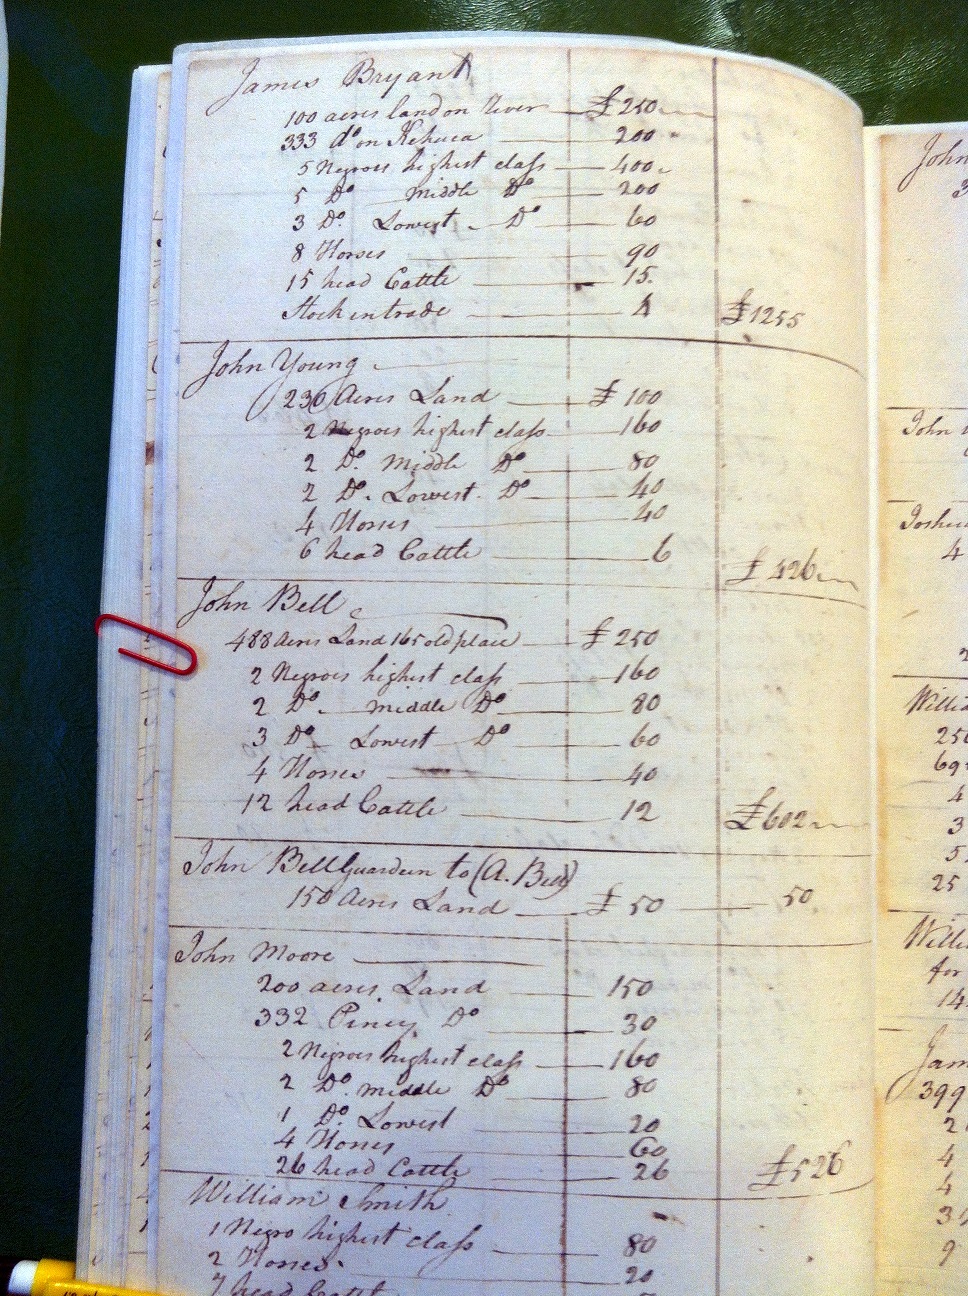 James Bryant
100 acres land on River £250
333 do on Kehuca 200
5 Negroes highest class 400
5 Do Middle Do 200
3 Do. Lowest Do 60
8 Horses 90
15 head Cattle 15.
Stock in trade £1255
John Young
230 Acres Land £ 100
2 Negroes highest class 160
2 Do. Middle Do 80
2 Do. Lowest. Do 40
4 Horses 40
6 head Cattle 6 £ 426
John Bell
488 Acres Land 165 old place £ 250
2 Negroes highest class 160
2 Do. middle Do 80
3 Do Lowest Do 60
4 Horses 40
12 head Cattle 12 £602
John Bell Guardeen to (A. Bell)
150 Acres Land £ 50 50
John Moore
200 acres Land 150
332 Piney Do 30
2 Negroes highest class 160
2 Do. middle Do 80
1 Do. Lowest 20
4 Horses 60
26 head Cattle 26 £526
William Smith
1 Negro highest class 80
2 Horses. 20
7 head Cattle
John
John
Joshua
4
250
4
3
5
25
for
14
399
2
4
4
9